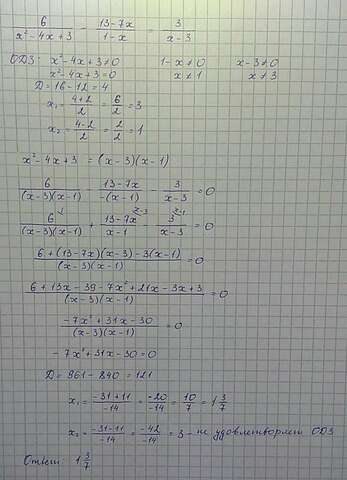 6/(x²-4x+3) - (13-7x)/(1-x) = 3/(x-3)
ОДЗ: x²-4x+3≠0   1-x≠0   x-3≠0
x²-4x+3=0   x≠1   x≠3
D=16-12=4
x₁=(4+2)/2=6/2=3
x₂=(4-2)/2=2/2=1
x²-4x+3=(x-3)(x-1)
6/((x-3)(x-1)) - (13-7x)/(-(x-1)) - 3/(x-3) = 0
6/((x-3)(x-1)) + (13-7x)/(x-1) - 3/(x-3) = 0
(6+(13-7x)(x-3)-3(x-1))/((x-3)(x-1)) = 0
(6+13x-39-7x²+21x-3x+3)/((x-3)(x-1)) = 0
(-7x²+31x-30)/((x-3)(x-1)) = 0
-7x²+31x-30=0
D=961-840=121
x₁=(-31+11)/(-14)=(-20)/(-14)=10/7=1 3/7
x₂=(-31-11)/(-14)=(-42)/(-14)=3 - не удовлетворяет ОДЗ
Ответ: 1 3/7